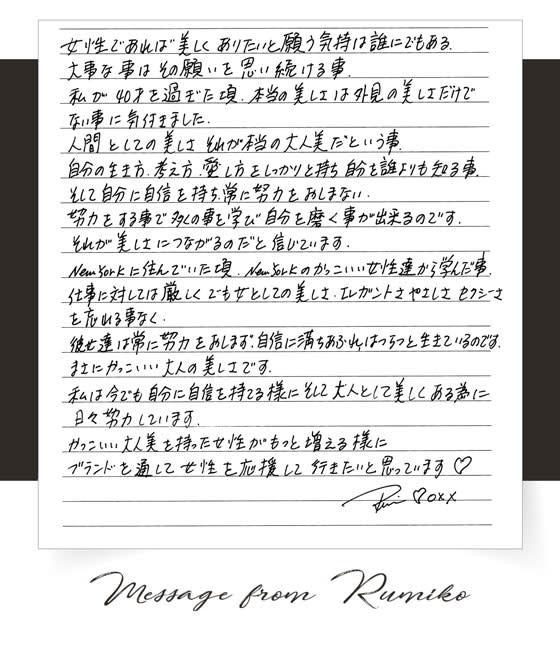 女性であれば美しくありたいと願う気持は誰にでもある.
大事な事はその願いを思い続ける事.
私が40才を過ぎた頃.本当の美しさは外見の美しさだけで
ない事に気付きました.
人間としての美しさ それが本当の大人美だという事.
自分の生き方.考え方.愛し方をしっかりと持ち自分を誰よりも知る事.
そして自分に自信を持ち.常に努力をおしまない.
努力をする事で多くの事を学び自分を磨く事が出来るのです.
それが美しさにつながるのだと信じています.
NewYorkに住んでいた頃.NewYorkのかっこいい女性達から学んだ事.
仕事に対しては厳しくでも女としての美しさ.エレガントさ やさしさ セクシーさ
を忘れる事なく.
彼女達は常に努力をおしまず.自信に満ちあふれはつらつと生きているのです.
まさにかっこいい大人の美しさです.
私は今でも自分に自信を持てる様に そして大人として美しくある為に
日々努力しています.
かっこいい大人美を持った女性がもっと増える様に
ブランドを通して女性を応援して行きたいと思っています♡
♡oxx
Message from Rumiko